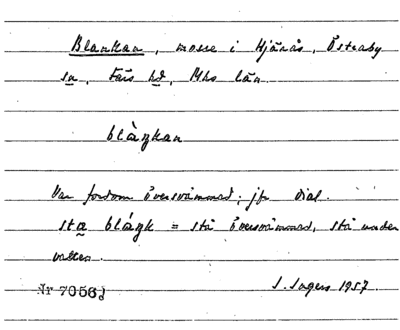 Blankan, mosse i Hjärås, Östraby
sn, Färs hd, Mhs län.
blàŋkan
Var fordom översvämmad; jfr dial.
sta bláŋk = stå översvämmad, stå under
vatten.
Nr 7056
S. Ingers 1957.